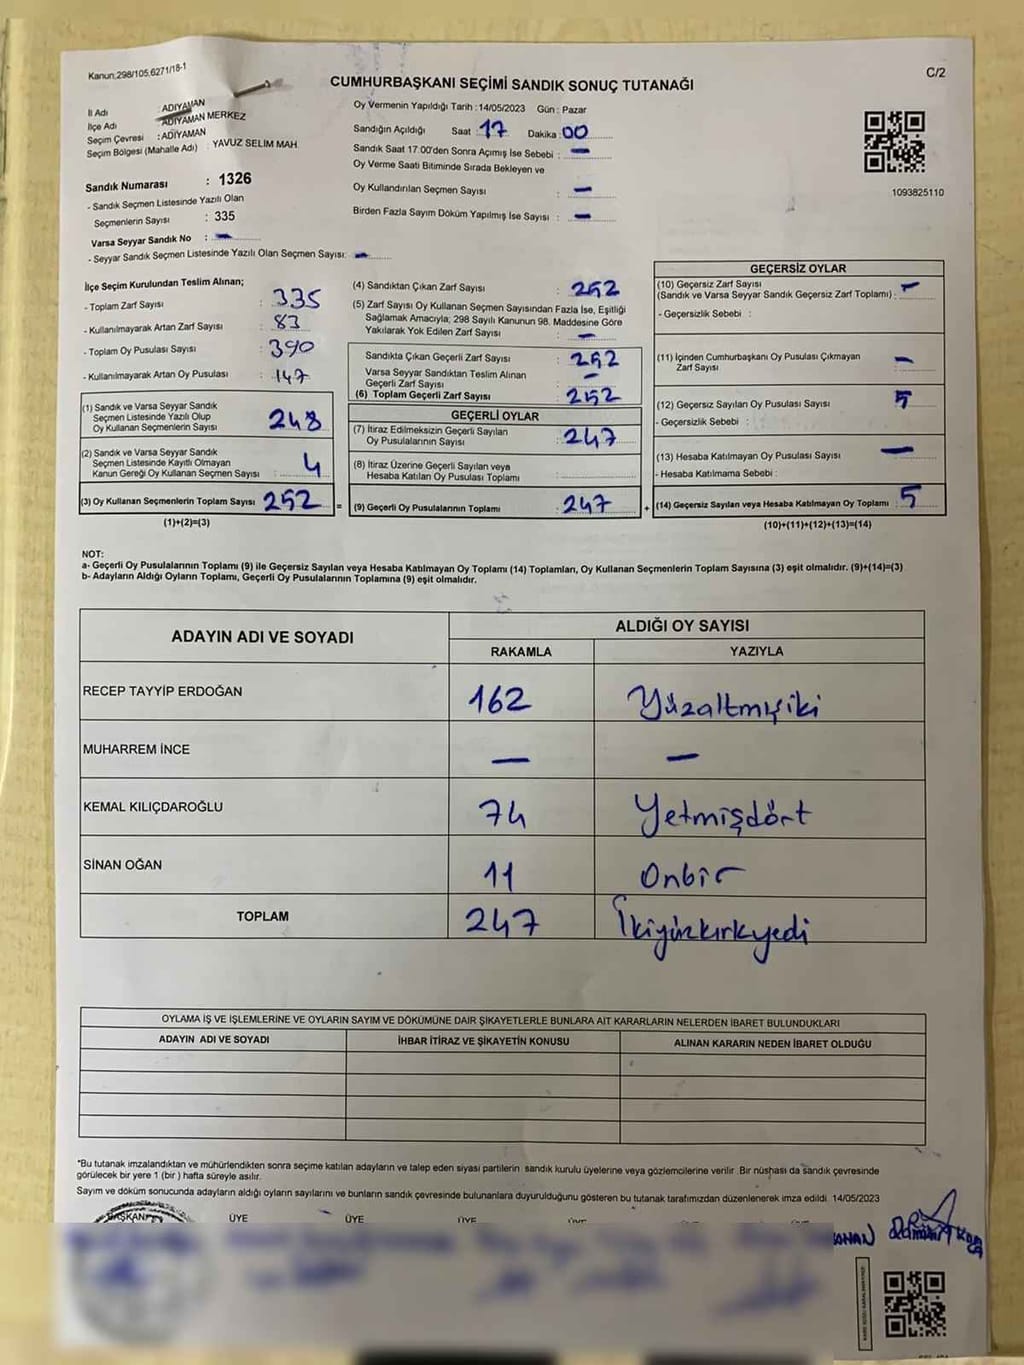 Kanun.298/105.6271/18-1
C/2
CUMHURBAŞKANI SEÇİMİ SANDIK SONUÇ TUTANAĞI
İl Adı : ADIYAMAN
İlçe Adı : ADIYAMAN MERKEZ
Seçim Çevresi : ADIYAMAN
Seçim Bölgesi (Mahalle Adı) : YAVUZ SELİM MAH.
Sandık Numarası : 1326
- Sandık Seçmen Listesinde Yazılı Olan
Seçmenlerin Sayısı : 335
Varsa Seyyar Sandık No : -
- Seyyar Sandık Seçmen Listesinde Yazılı Olan Seçmen Sayısı: -
Oy Vermenin Yapıldığı Tarih : 14/05/2023 Gün : Pazar
Sandığın Açıldığı Saat : 17 Dakika : 00
Sandık Saat 17:00'den Sonra Açımış İse Sebebi : -
Oy Verme Saati Bitiminde Sırada Bekleyen ve
Oy Kullandırılan Seçmen Sayısı : -
Birden Fazla Sayım Döküm Yapılmış İse Sayısı : -
1093825110
İlçe Seçim Kurulundan Teslim Alınan;
- Toplam Zarf Sayısı : 335
- Kullanılmayarak Artan Zarf Sayısı : 83
- Toplam Oy Pusulası Sayısı : 390
- Kullanılmayarak Artan Oy Pusulası : 147
(1) Sandık ve Varsa Seyyar Sandık
Seçmen Listesinde Yazılı Olup
Oy Kullanan Seçmenlerin Sayısı : 248
(2) Sandık ve Varsa Seyyar Sandık
Seçmen Listesinde Kayıtlı Olmayan
Kanun Gereği Oy Kullanan Seçmen Sayısı : 4
(3) Oy Kullanan Seçmenlerin Toplam Sayısı : 252
(1)+(2)=(3)
(4) Sandıktan Çıkan Zarf Sayısı : 252
(5) Zarf Sayısı Oy Kullanan Seçmen Sayısından Fazla İse, Eşitliği
Sağlamak Amacıyla, 298 Sayılı Kanunun 98. Maddesine Göre
Yakılarak Yok Edilen Zarf Sayısı : -
Sandıkta Çıkan Geçerli Zarf Sayısı : 252
Varsa Seyyar Sandıktan Teslim Alınan
Geçerli Zarf Sayısı : -
(6) Toplam Geçerli Zarf Sayısı : 252
GEÇERLİ OYLAR
(7) İtiraz Edilmeksizin Geçerli Sayılan
Oy Pusulalarının Sayısı : 247
(8) İtiraz Üzerine Geçerli Sayılan veya
Hesaba Katılan Oy Pusulası Toplamı :
= (9) Geçerli Oy Pusulalarının Toplamı : 247 +
GEÇERSİZ OYLAR
(10) Geçersiz Zarf Sayısı
(Sandık ve Varsa Seyyar Sandık Geçersiz Zarf Toplamı) : -
- Geçersizlik Sebebi :
(11) İçinden Cumhurbaşkanı Oy Pusulası Çıkmayan
Zarf Sayısı : -
(12) Geçersiz Sayılan Oy Pusulası Sayısı : 5
- Geçersizlik Sebebi :
(13) Hesaba Katılmayan Oy Pusulası Sayısı : -
- Hesaba Katılmama Sebebi :
(14) Geçersiz Sayılan veya Hesaba Katılmayan Oy Toplamı : 5
(10)+(11)+(12)+(13)=(14)
NOT:
a- Geçerli Oy Pusulalarının Toplamı (9) ile Geçersiz Sayılan veya Hesaba Katılmayan Oy Toplamı (14) Toplamları, Oy Kullanan Seçmenlerin Toplam Sayısına (3) eşit olmalıdır. (9)+(14)=(3)
b- Adayların Aldığı Oyların Toplamı, Geçerli Oy Pusulalarının Toplamına (9) eşit olmalıdır.
ADAYIN ADI VE SOYADI
ALDIĞI OY SAYISI
RAKAMLA YAZIYLA
RECEP TAYYİP ERDOĞAN 162 Yüzaltmışiki
MUHARREM İNCE - -
KEMAL KILIÇDAROĞLU 74 Yetmişdört
SİNAN OĞAN 11 Onbir
TOPLAM 247 İkiyüzkırkyedi
OYLAMA İŞ VE İŞLEMLERİNE VE OYLARIN SAYIM VE DÖKÜMÜNE DAİR ŞİKAYETLERLE BUNLARA AİT KARARLARIN NELERDEN İBARET BULUNDUKLARI
ADAYIN ADI VE SOYADI İHBAR İTİRAZ VE ŞİKAYETİN KONUSU ALINAN KARARIN NEDEN İBARET OLDUĞU
*Bu tutanak imzalandıktan ve mühürlendikten sonra seçime katılan adayların ve talep eden siyasi partilerin sandık kurulu üyelerine veya gözlemcilerine verilir. Bir nüshası da sandık çevresinde
görülecek bir yere 1 (bir) hafta süreyle asılır.
Sayım ve döküm sonucunda adayların aldığı oyların sayılarını ve bunların sandık çevresinde bulunanlara duyurulduğunu gösteren bu tutanak tarafımızdan düzenlenerek imza edildi. 14/05/2023
BAŞKAN ÜYE ÜYE ÜYE